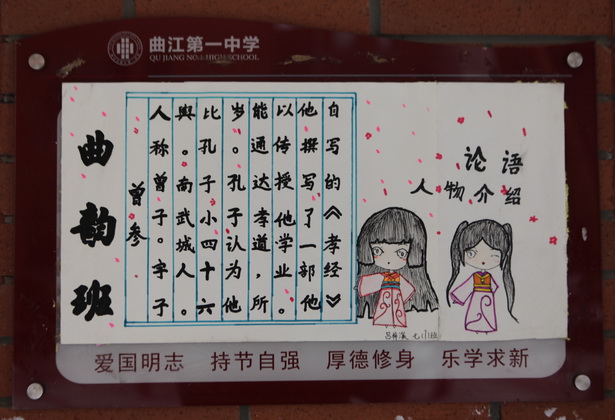 曲江第一中学
QU JIANG NO.1 HIGH SCHOOL
曲韵班
曾参
人称曾子。字子
舆。南武城人。
比孔子小四十六
岁。孔子认为他
能通达孝道，所
以传授他学业。
他撰写了一部他
自写的《孝经》
论语
人物介绍
爱国明志 持节自强 厚德修身 乐学求新